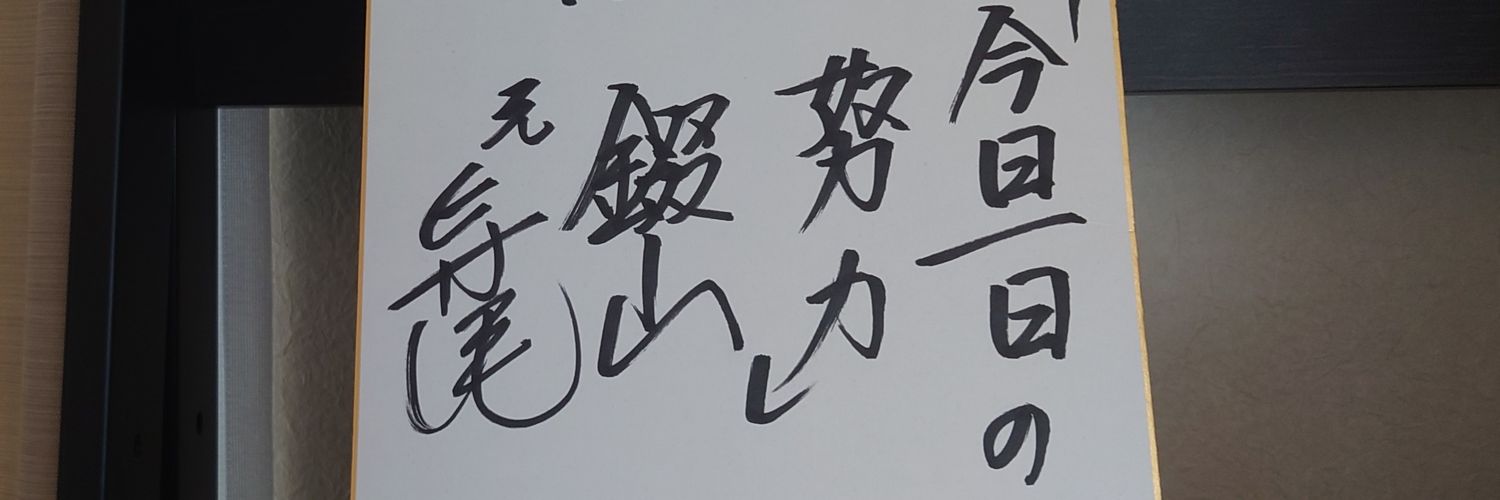 「今日一日の
努力」
錣山
元寺尾